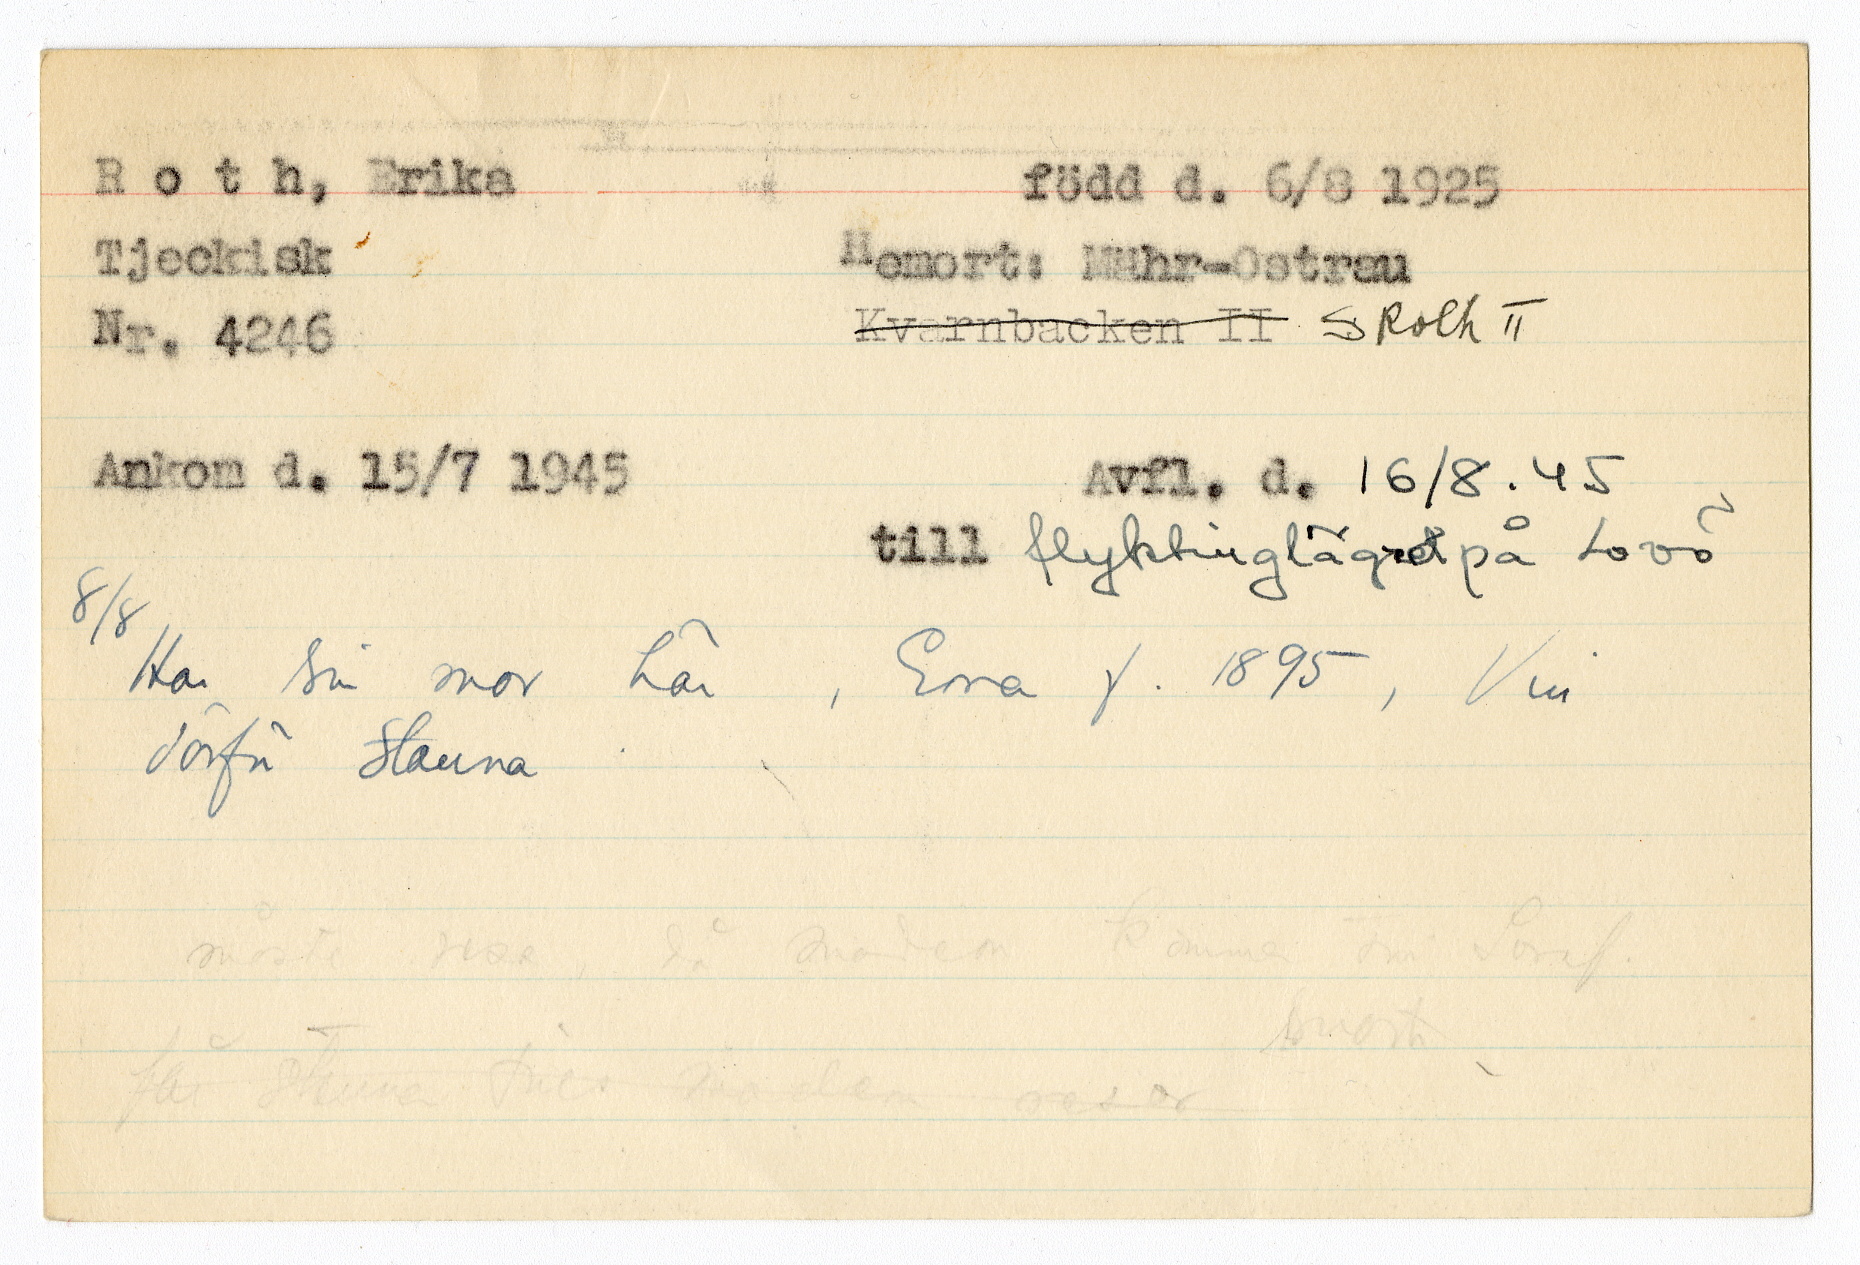 R o t h, Erika född d. 6/8 1925
Tjeckisk Hemort: Mähr-Ostrau
Nr. 4246 Kvarnbacken II Roth II
Ankom d. 15/7 1945 Avfl. d. 16/8.45
till flyktinglägret på Lovö
8/8
Har sin mor här, Erna f. 1895, Vill
därför stanna
måste resa, då modern kommer
snart
får stanna tills modern reser